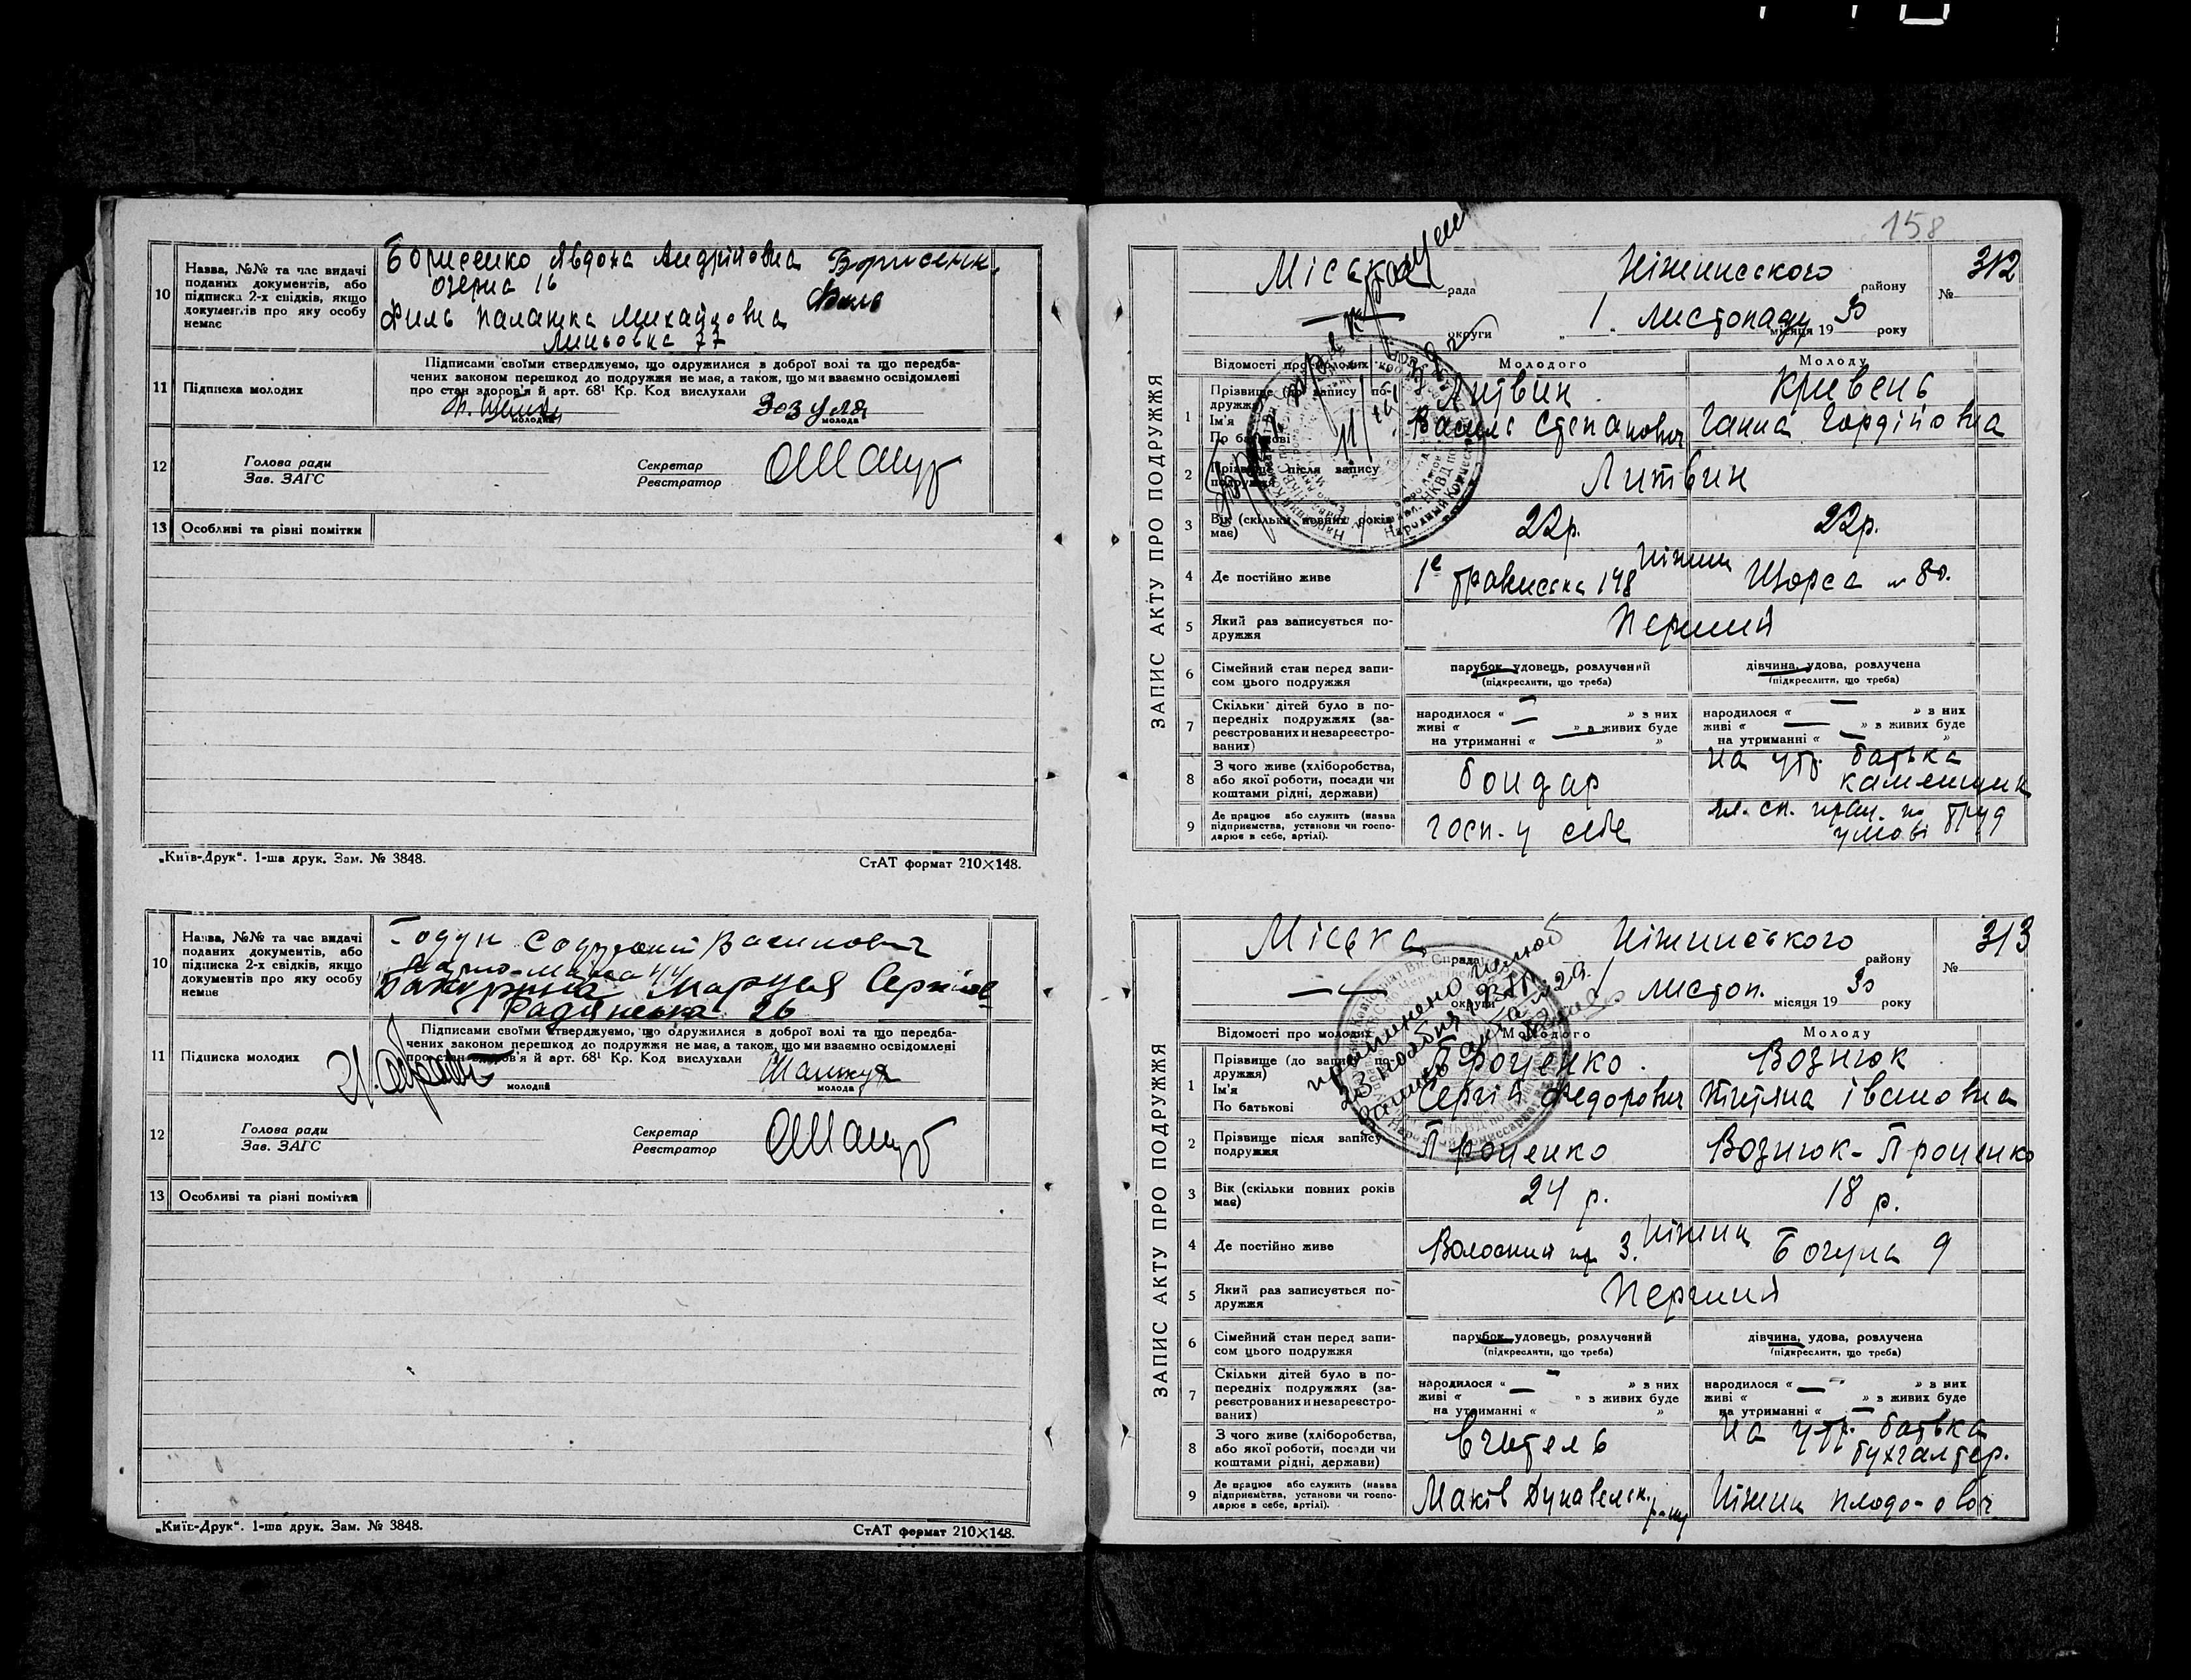 10
Назва, №№ та час видачі
поданих документів, або
підписка 2-х свідків, якщо
документів про яку особу
немає
Борисенко Явдоха Андріївна Борисенк.
Озерна 16
Филь Палажка Михайловна Филь
Миньовка 77
11
Підписка молодих
Підписами своїми стверджуємо, що одружилися в доброї волі та що передба-
чених законом перешкод до подружжя не має, а також, що ми взаємно освідомлені
про стан здоров'я й арт. 68¹ Кр. Код вислухали
Зозуля
молодий
молода
12
Голова ради
Зав. ЗАГС
Секретар
Реєстратор
13
Особливі та різні помітки
„Київ-Друк". 1-ша друк. Зам. № 3848.
СтАТ формат 210×148.
10
Назва, №№ та час видачі
поданих документів, або
підписка 2-х свідків, якщо
документів про яку особу
немає
Годун Василович
Мартея
Радянська 26
11
Підписка молодих
Підписами своїми стверджуємо, що одружилися в доброї волі та що передба-
чених законом перешкод до подружжя не має, а також, що ми взаємно освідомлені
про стан здоров'я й арт. 68¹ Кр. Код вислухали
молодий
молода
12
Голова ради
Зав. ЗАГС
Секретар
Реєстратор
13
Особливі та різні помітки
„Київ-Друк". 1-ша друк. Зам. № 3848.
СтАТ формат 210×148.
158
ЗАПИС АКТУ ПРО ПОДРУЖЖЯ
Міська рада Ніжинського району № 312
— округи „ 1. листопаду місяця 1930 року
Відомості про молодих
Молодого
Молоду
1
Прізвище (до запису по-
дружжя)
Ім'я
По батькові
Литвин
Василь Степанович
Кривень
Ганна Гордіївна
2
Прізвище після запису
подружжя
Литвин
3
Вік (скільки повних років
має)
22р.
22р.
4
Де постійно живе
148
Ніжин
Щорса № 80.
5
Який раз записується по-
дружжя
Перший
6
Сімейний стан перед запи-
сом цього подружжя
парубок, удовець, розлучений
(підкреслити, що треба)
дівчина, удова, розлучена
(підкреслити, що треба)
7
Скільки дітей було в по-
передніх подружжях (за-
реєстрованих и незареєстро-
ваних)
народилося « — » з них
живі « — » в живих буде
на утриманні « »
народилося « — » з них
живі « — » в живих буде
на утриманні « — »
8
З чого живе (хліборобства,
або якої роботи, посади чи
коштами рідні, держави)
бондар
на утр. батька
каменщик
9
Де працює або служить (назва
підприємства, установи чи госпо-
дарює в себе, артілі).
госп. у себе
по труд
умові
ЗАПИС АКТУ ПРО ПОДРУЖЖЯ
Міська рада Ніжинського району № 313
— округи 1 листоп. місяця 1930 року
Відомості про молодих
Молодого
Молоду
1
Прізвище (до запису по-
дружжя)
Ім'я
По батькові
Проценко
Сергій Федорович
Вознюк
Тітяна Івановна
2
Прізвище після запису
подружжя
Проценко
Вознюк-Проценко
3
Вік (скільки повних років
має)
24 р.
18 р.
4
Де постійно живе
3.
Ніжин
Богуна 9
5
Який раз записується по-
дружжя
Перший
6
Сімейний стан перед запи-
сом цього подружжя
парубок, удовець, розлучений
(підкреслити, що треба)
дівчина, удова, розлучена
(підкреслити, що треба)
7
Скільки дітей було в по-
передніх подружжях (за-
реєстрованих и незареєстро-
ваних)
народилося « — » з них
живі « — » в живих буде
на утриманні « »
народилося « — » з них
живі « — » в живих буде
на утриманні « — »
8
З чого живе (хліборобства,
або якої роботи, посади чи
коштами рідні, держави)
вчитель
на утр. батька
бухгалтер.
9
Де працює або служить (назва
підприємства, установи чи госпо-
дарює в себе, артілі).
Маків Дунавецьк.
р-ну
Ніжин плодо-овоч